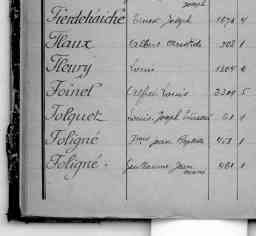 Joseph
Fierdehaiche Ernest Joseph 1674 4
Flaux Albert Aristide 308 1
Fleury Louis 1304
Foinel Alfred Louis 2309 5
Folquet Louis Joseph 51 1
Foligné Jean Baptiste 453 1
Foligné Guillaume Jean 481 1